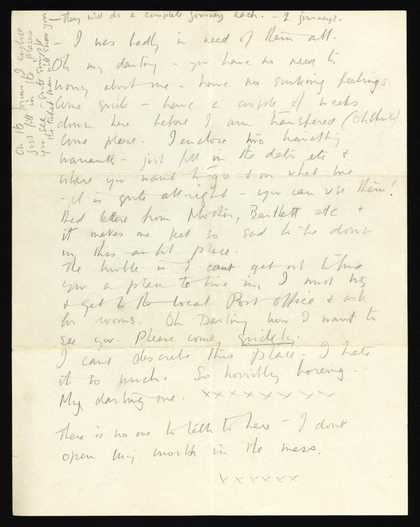 - They will do a complete journey each. - 2 journeys.
- I was badly in need of them all.
Oh my darling - you have no need to
worry about me - have no sinking feelings.
Come quick - have a couple of weeks
down here before I am transferred
Come please. I enclose two travelling
warrants - just fill in the date etc &
where you want to go & on what line
- it is quite all right - you can use them!
Had letters from Bartlett etc &
it makes me feel so sad to be down
in this place.
The trouble is I cant get out to find
you a place to live in, I must try
& get to the local Post office & ask
for rooms. Oh Darling how I want to
see you. Please come, quickly.
I cant describe this place - I hate
it so much. So horribly boring.
My darling one. x x x x x x x x
There is no one to talk to here - I dont
open my mouth in the mess.
x x x x x x